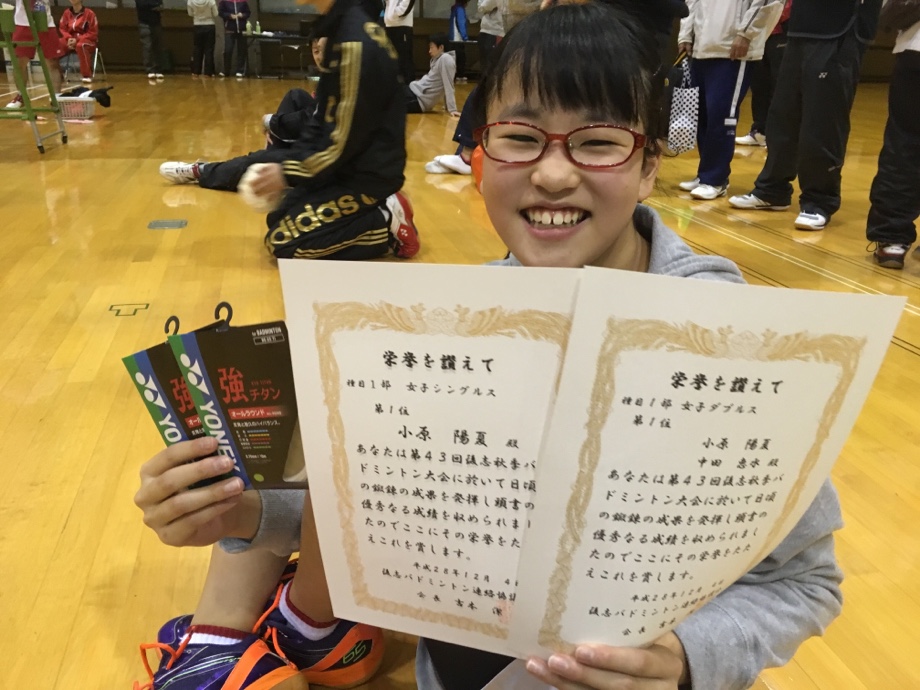 adidas
YONEX
強
チタン
オールラウンド
for BADMINTON
栄誉を讃えて
種目1部 女子シングルス
第1位
小原 陽夏 殿
あなたは第43回議志秋季バ
ドミントン大会に於いて日頃
の鍛錬の成果を発揮し頭書の
優秀なる成績を収められまし
たのでここにその栄誉をた
えこれを賞します。
平成28年12月4
議志バドミントン連絡協
会長 吉本
栄誉を讃えて
種目1部 女子ダブルス
第1位
小原 陽夏
中田 恵水 殿
あなたは第43回議志秋季バ
ドミントン大会に於いて日頃
の鍛錬の成果を発揮し頭書の
優秀なる成績を収められまし
たのでここにその栄誉をたた
えこれを賞します。
平成28年12月
議志バドミントン連絡
会長 吉